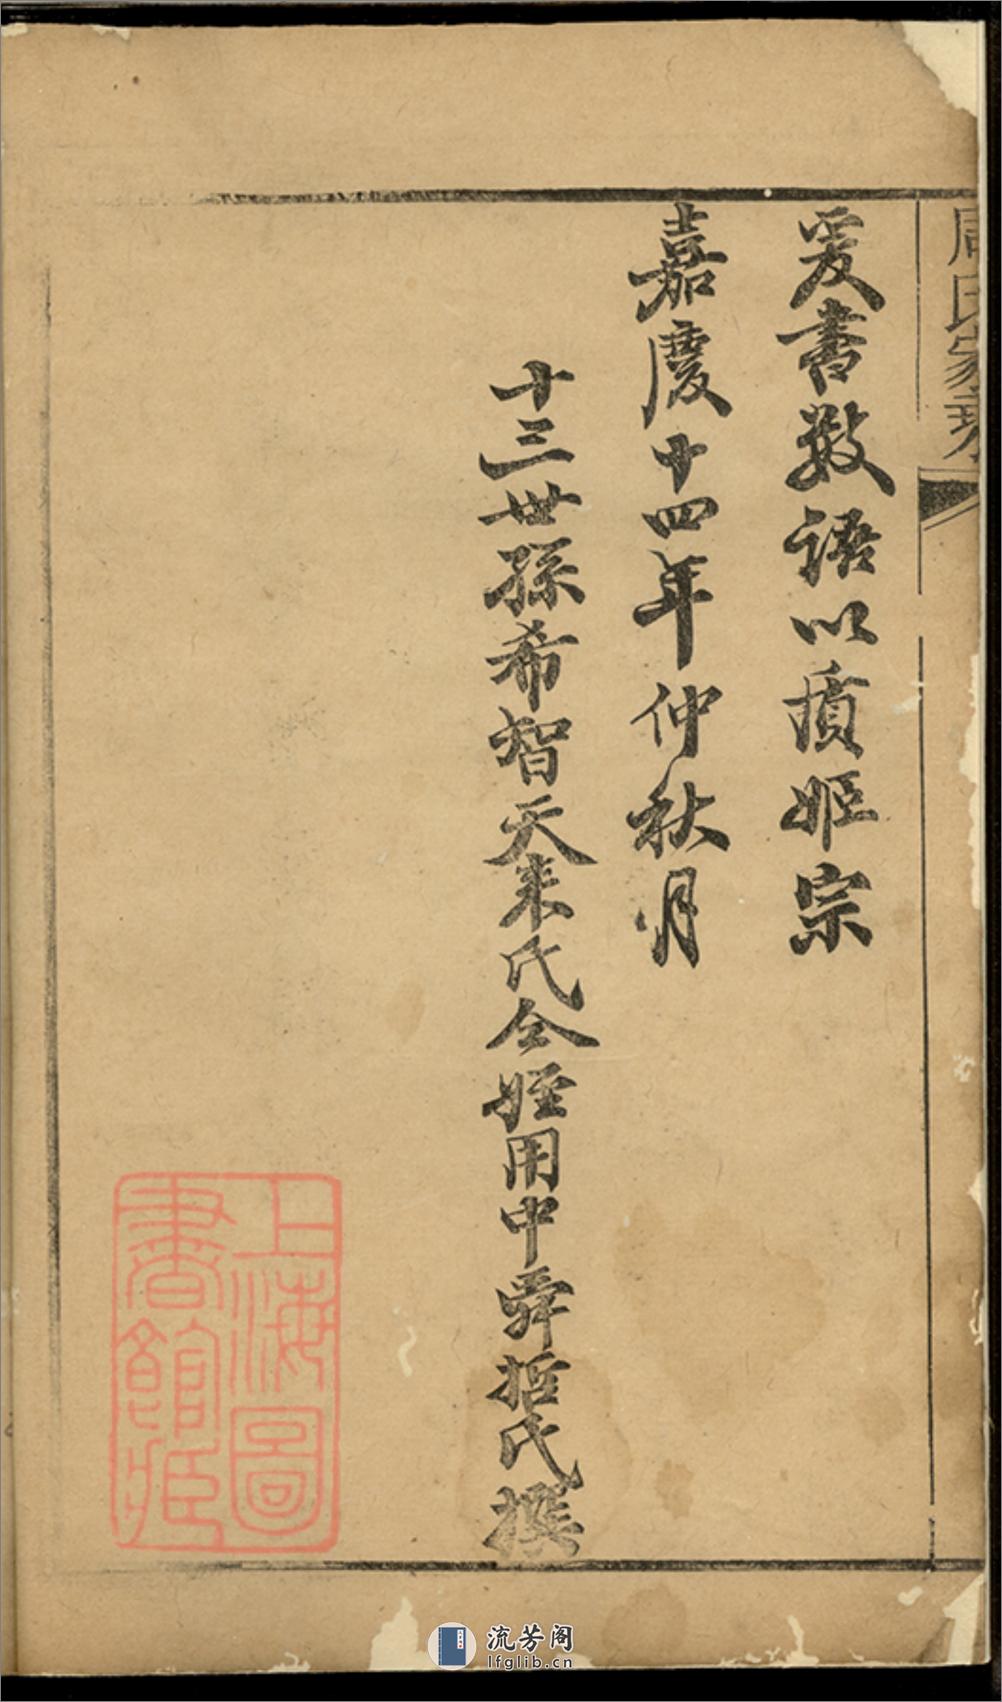 周氏家
爰書数語以質姬宗
嘉慶十四年仲秋月
十三世孫希智天来氏仝姪用中舜哲氏撰
上海圖
書館藏
流芳阁
lfglib.cn